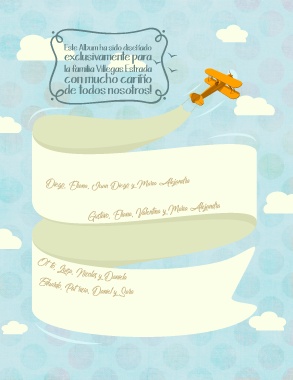 Este Album ha sido diseñado
exclusivamente para
la familia Villegas Estrada
con mucho cariño
de todos nosotros!
Diego, Elena, Juan Diego y Maria Alejandra
Gustavo, Eliana, Valentina y Maria Alejandra
Luisa, Nicolas y Daniela
Eduardo, Patricia, Daniel y